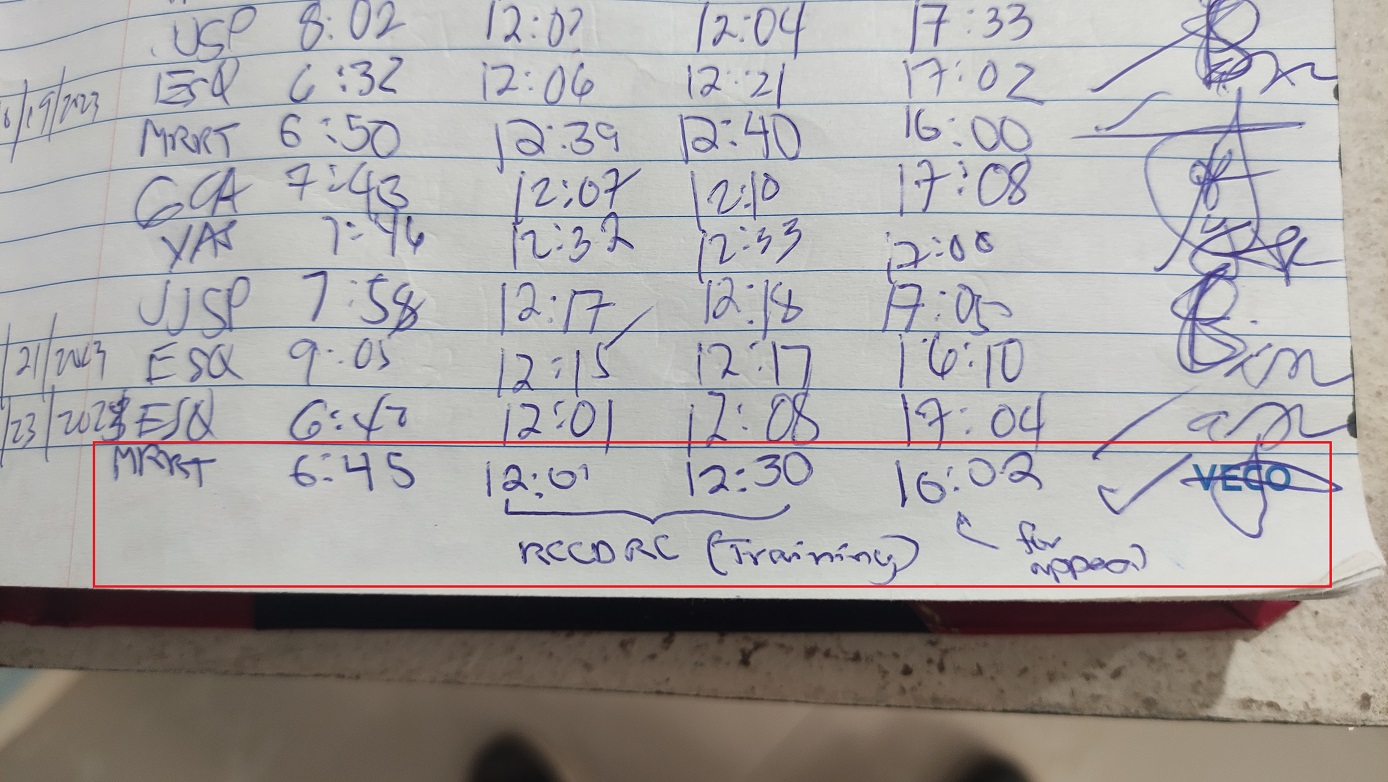 JJSP 8:02 12:02 12:04 17:33
ESQ 6:32 12:06 12:21 17:02
6/19/2023
MRRT 6:50 12:39 12:40 16:00
GCA 7:43 12:07 12:10 17:08
YAS 7:46 12:32 12:33 17:00
JJSP 7:58 12:17 12:18 17:05
/21/2023 ESQ 9:05 12:15 12:17 16:10
/23/2023 ESQ 6:42 12:01 12:08 17:04
MRRT 6:45 12:01 12:30 16:02 VECO
RCCDRC (Training) for appeal